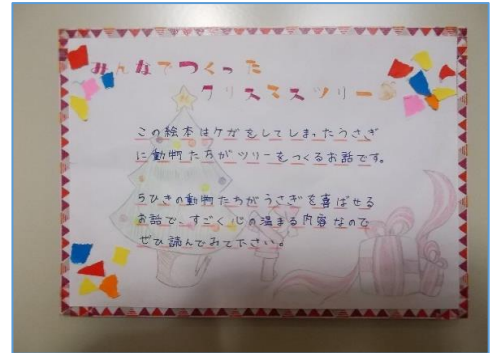 みんなでつくった
クリスマスツリー
この絵本はケガをしてしまったうさぎ
に動物た方がツリーをつくるお話です。
5ひきの動物たちがうさぎを喜ばせる
お話で、すごく心の温まる内容なので
ぜひ読んでみて下さい。